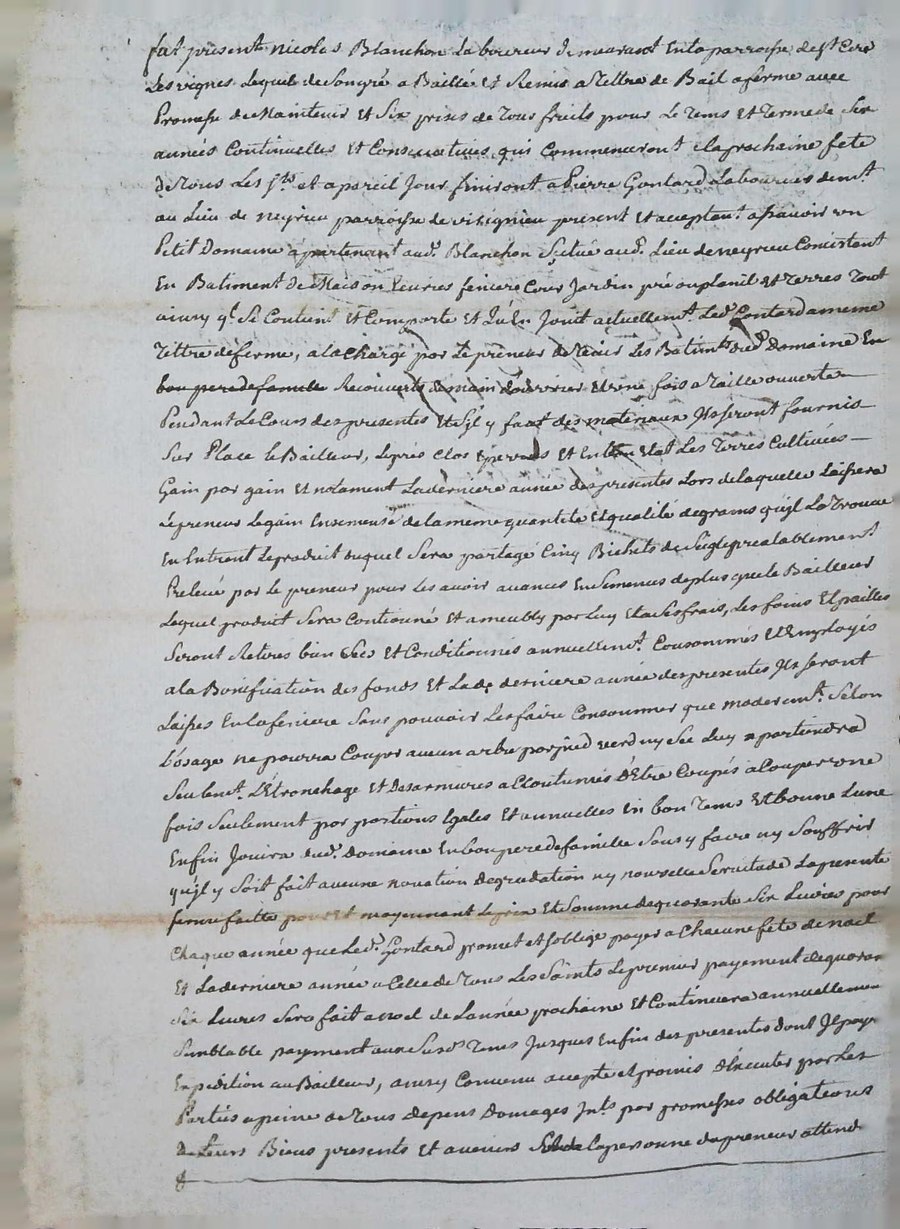 fut present nicolas Blanchon Laboureur demeurant En la parroisse de st Cire
Les vignes Lequel de Son gré a Baillé Et Remis a Tettre de Bail a ferme avec
Promesse de Maintenir Et Six prises de Tous fruits pour Le Tems Et Terme de Six
années Continuelles Et Consecutives qui Commenceront a la prochaine fete
de Tous Les Sts et a pareil Jour finiront a Pierre Gontard Laboureur demt
au Lieu de neyrieu parroisse de visignieu present Et acceptant assavoir un
Petit Domaine apartenant aud. Blanchon Scitué aud. Lieu de neyrieu Consistent
En Batiment de Maison Ecuries feniere Cour Jardin pré ou planil Et Terres Tout
ainsy q. Se Contient Et Comporte Et Jouit actuellemt. Led. Gontard a meme
Tettre de ferme, a la Charge par Le preneur de Tenir Les Batimts dud. Domaine En
bon pere de famille Recouverts de main d'ouvrier Et une fois a Taille ouverte
Pendant Le Cours des presentes Et S'il y faut des materiaux Ils seront fournis
Sur Place le Bailleur, Les prés Clos Et En bon Etat Les Terres Cultivées
Gain par gain Et notament La derniere année des presentes Lors de laquelle Laissera
Le preneur Le gain Ensemensé de la meme quantité Et qualité de grains qu'il La Trouvé
En Entrent Le produit duquel Sera partagé Cinq Bichets de Seigle prealablement
Prelevé par le preneur pour Les avoir avancés En Semences de plus que le Bailleur
Lequel produit Sera Et par Luy Et a Ses frais, Les foins Et pailles
Seront Retirés bien Secs Et Conditionnés annuellemt. Consommés Et Employés
a la Bonification des fonds Et La de. derniere année des presentes Ils Seront
Laissés En la feniere Sans pouvoir Les faire Consommer que moderemt. Selon
L'usage ne pourra Couper aucun arbre par pied verd ny Sec Luy apartiendra
Seulemt. L'Etronchage Et acCoutumés d'Etre Coupés a Couper une
fois Seulement par portions Egales Et annuelles En bon Tems Et bonne Lune
Enfin Jouira dud. Domaine En bon pere de famille Sans y faire ny Souffrir
qu'il y Soit fait aucune novation degradation ny nouvelle Servitude La presente
ferme faitte moyennant Le prix Et Somme de quarante Six Livres pour
Chaque année que Led. Gontard promet et s'oblige payer a Chacune fete de noel
Et La derniere année a Celle de Tous Les Saints Le premier payement de quaran
Six Livres Sera fait a noel de L'année prochaine Et Continuera annuellement
Semblable payement aux Susds. Tems Jusques En fin des presentes dont Il paye
Expedition au Bailleur, ainsy Convenu accepté Et promis d'Executer par Les
Parties a peine de Tous depens Domages Ints. par promesses obligations
de Leurs Biens presents et avenirs de La personne du preneur attendu